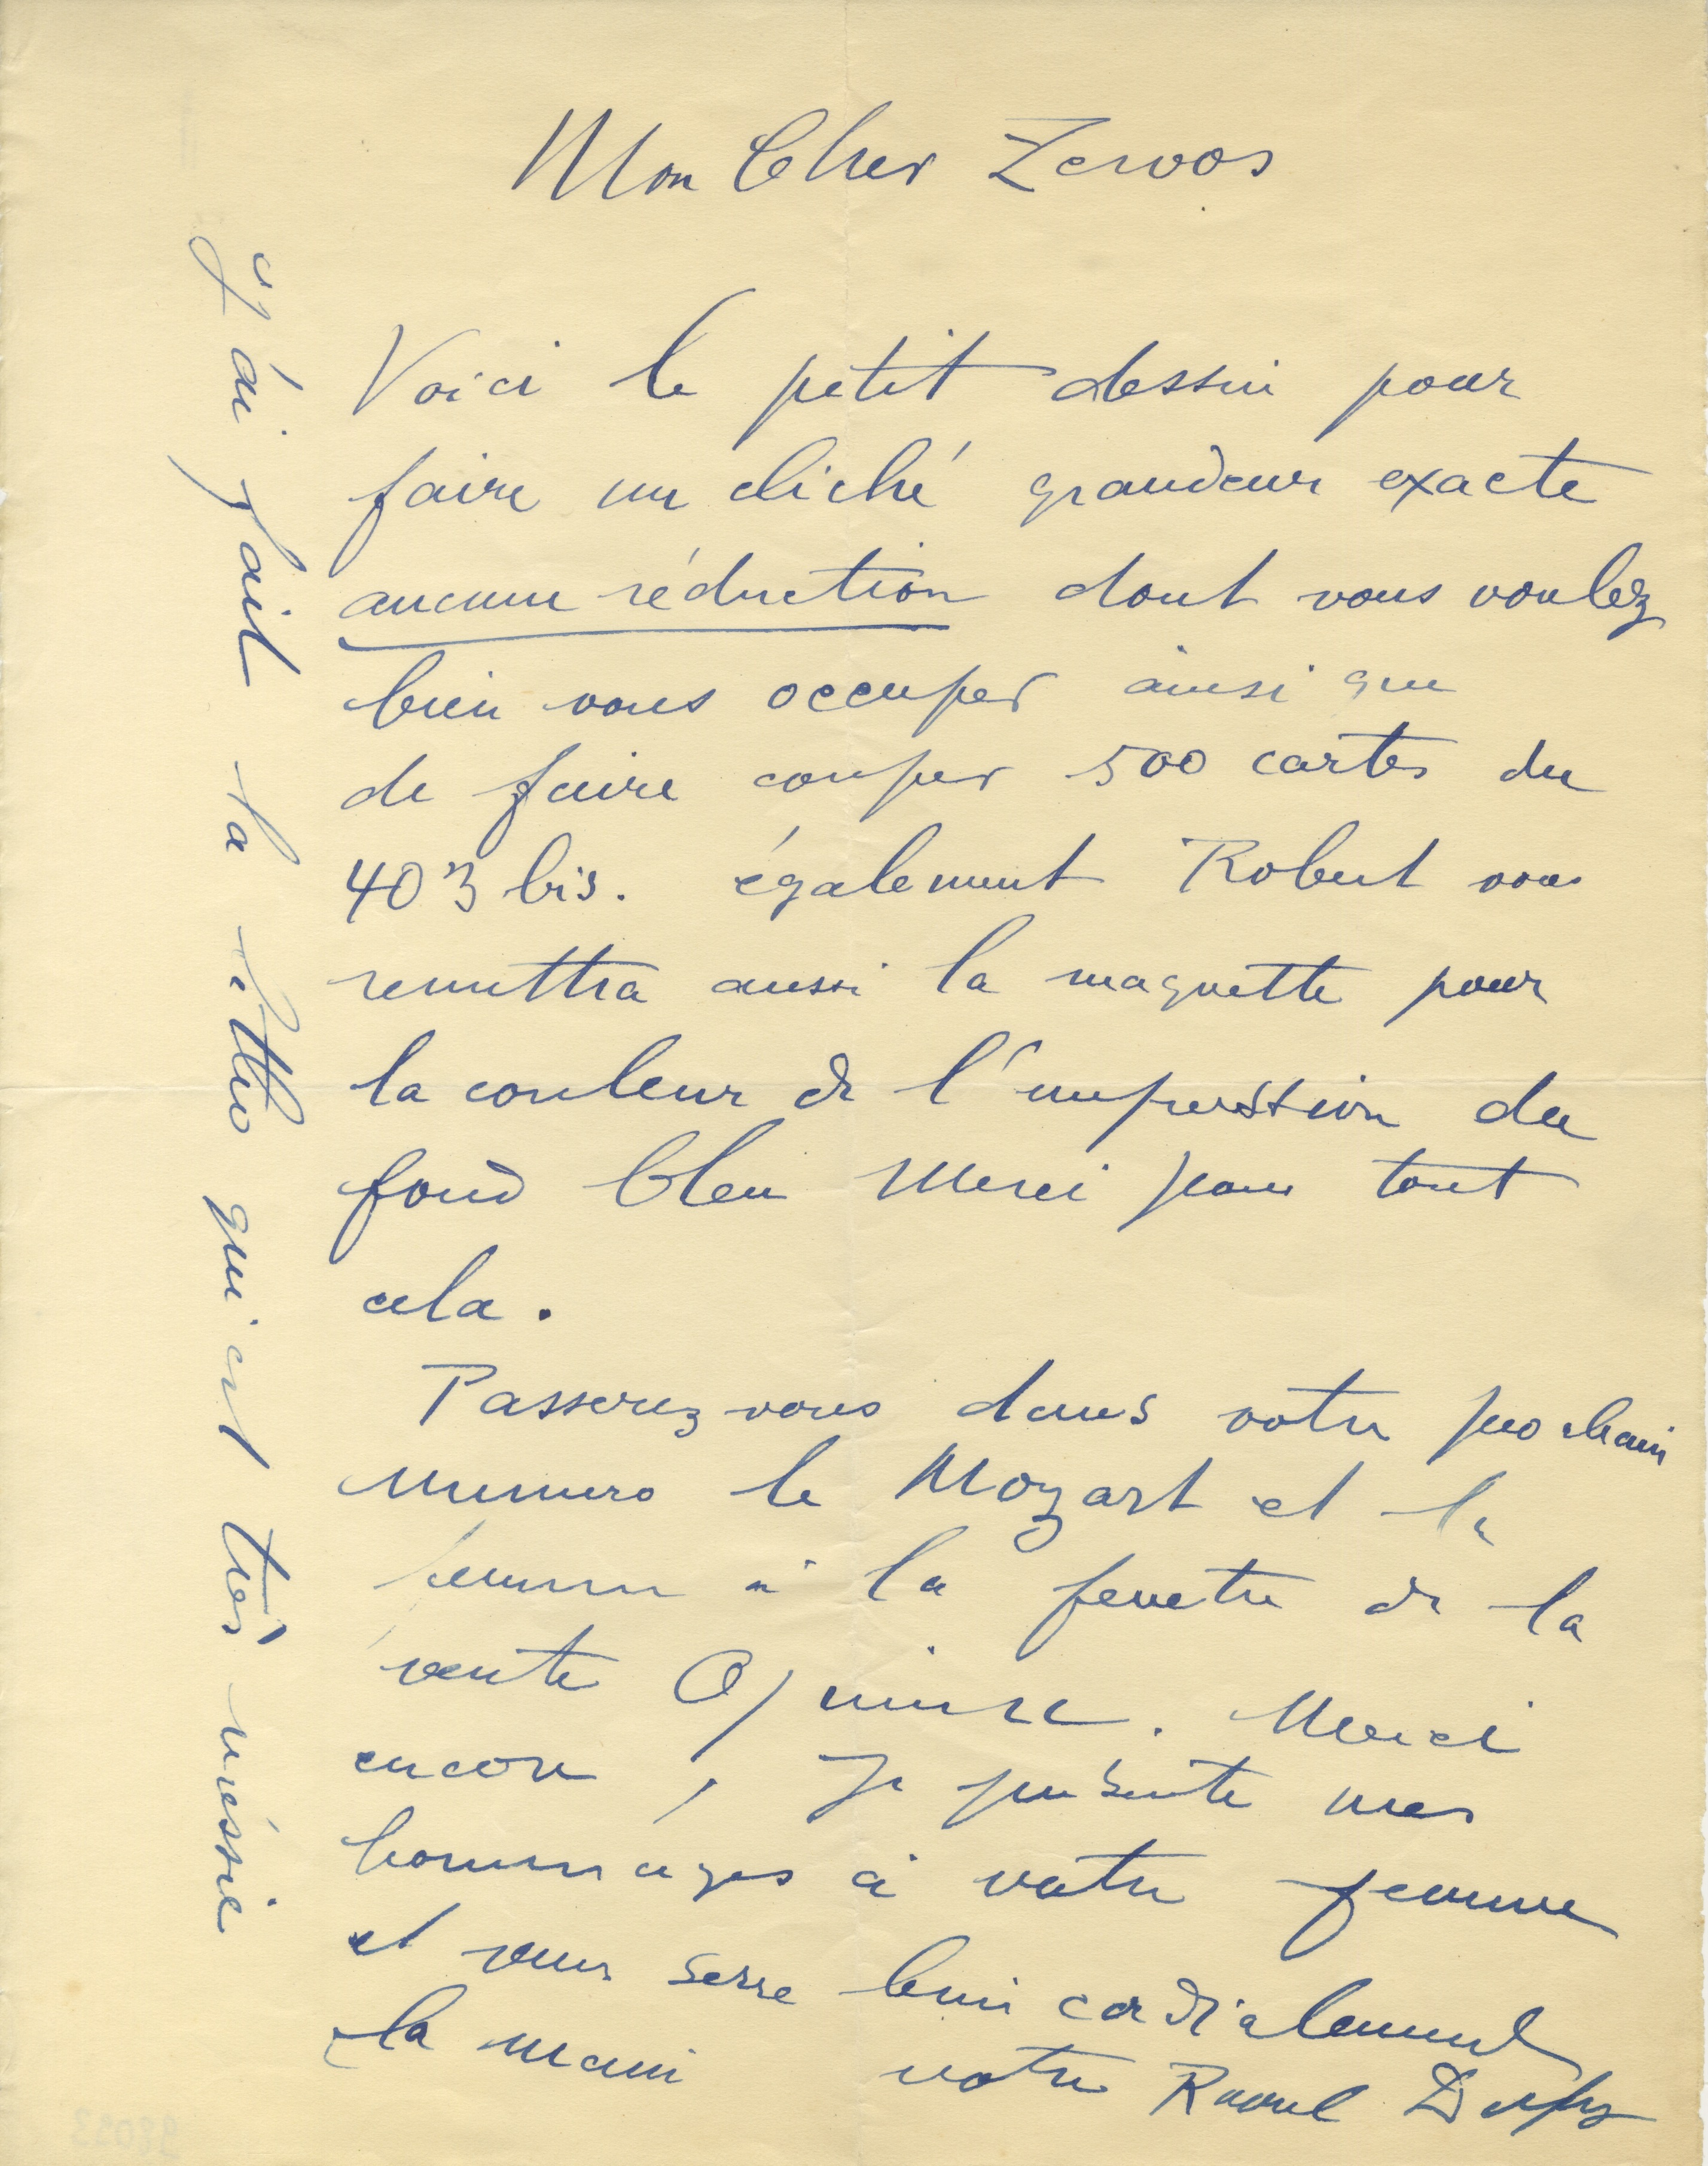 Mon Cher Zervos
Voici le petit dessin pour
faire un cliché grandeur exacte
aucune réduction dont vous voulez
bien vous occuper ainsi que
de faire couper 500 cartes du
403 bis. également Robert vous
remettra aussi la maquette pour
la couleur de l'impression du
fond bleu Merci pour tout
cela.
Passerez vous dans votre prochain
numero le Mozart et la
femme à la fenetre de la
vente. Merci
encore, Je presente mes
hommages à votre femme
et vous serre bien cordialement
la main votre Raoul Dufy
J'ai fait la litho qui est très réussie